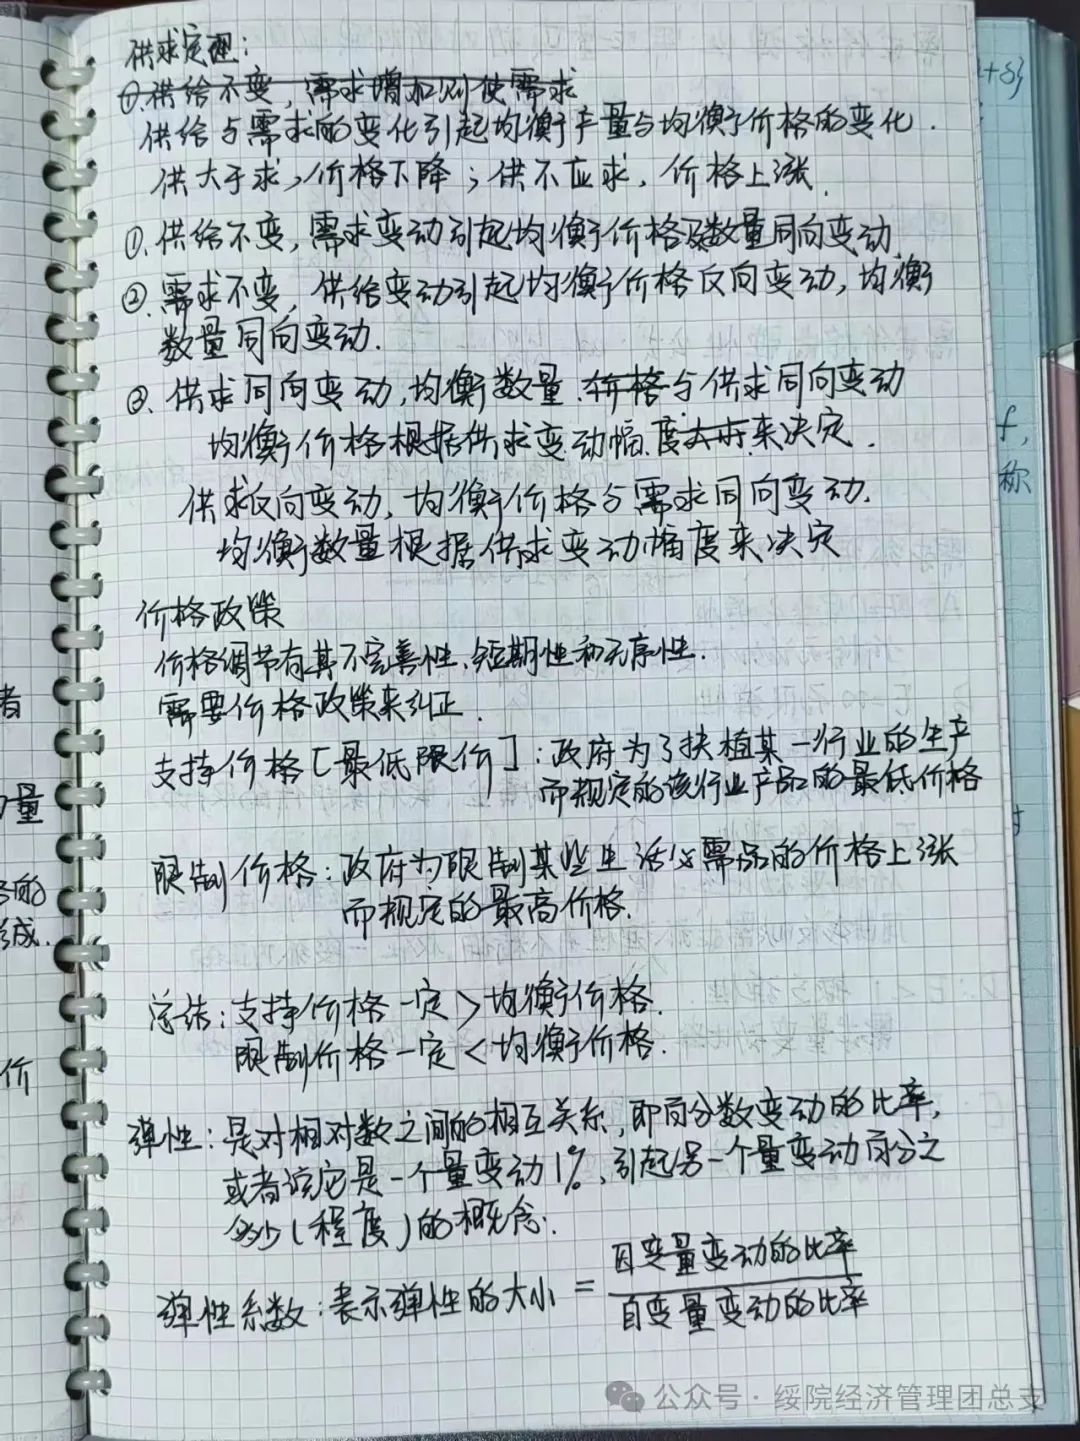 供求定理:
①.供给不变，需求增加则使需求
供给与需求的变化引起均衡产量与均衡价格的变化.
供大于求,价格下降;供不应求,价格上涨.
①.供给不变,需求变动引起均衡价格及数量同向变动.
②.需求不变,供给变动引起均衡价格反向变动,均衡
数量同向变动.
③.供求同向变动,均衡数量.价格与供求同向变动
均衡价格根据供求变动幅度大小来决定.
供求反向变动,均衡价格与需求同向变动.
均衡数量根据供求变动幅度来决定
价格政策
价格调节有其不完善性、短期性和无序性.
需要价格政策来纠正.
支持价格[最低限价]:政府为了扶植某一行业的生产
而规定的该行业产品的最低价格
限制价格:政府为限制某些生活必需品的价格上涨
而规定的最高价格.
总结:支持价格一定>均衡价格.
限制价格一定<均衡价格.
弹性:是对相对数之间的相互关系,即百分数变动的比率,
或者说它是一个量变动1%,引起另一个量变动百分之
多少(程度)的概念.
弹性系数:表示弹性的大小=因变量变动的比率
自变量变动的比率
者
量
的
成.
价
+8}
f,
称
公众号·绥院经济管理团总支